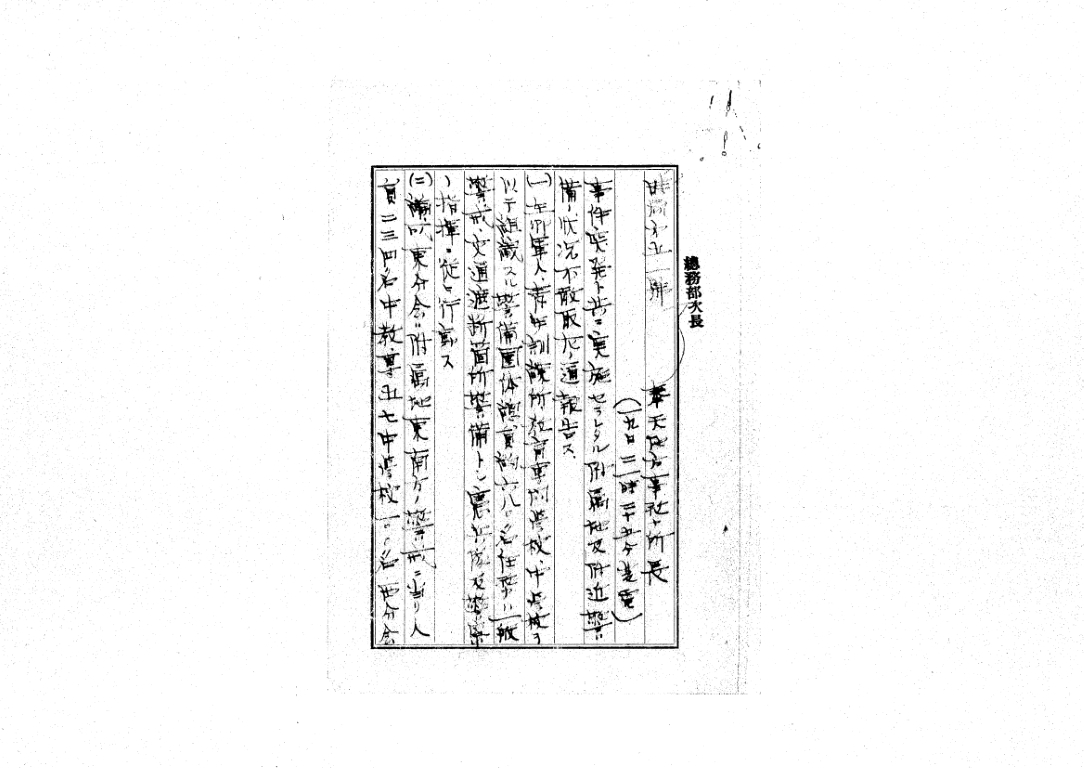 總務部次長
時局第五一號
奉天地方事務所長
(一九日二一時二十五分発電)
事件突発ト共ニ実施セラレタル附属地及附近警
備ノ状況不取敢左ノ通報告ス、
(一)在郷軍人、青年訓練所教育専門学校、中学校ヲ
以テ組織スル警備團体総員約六八〇名任務ハ一般
警戒、交通遮断箇所警備トシ憲兵隊及警察
ノ指揮ニ従ヒ行動ス
(二)編成、東分会ハ附属地東南方ノ警戒ニ当リ人
員二三四名中教専五七中学校一〇〇名 西分会